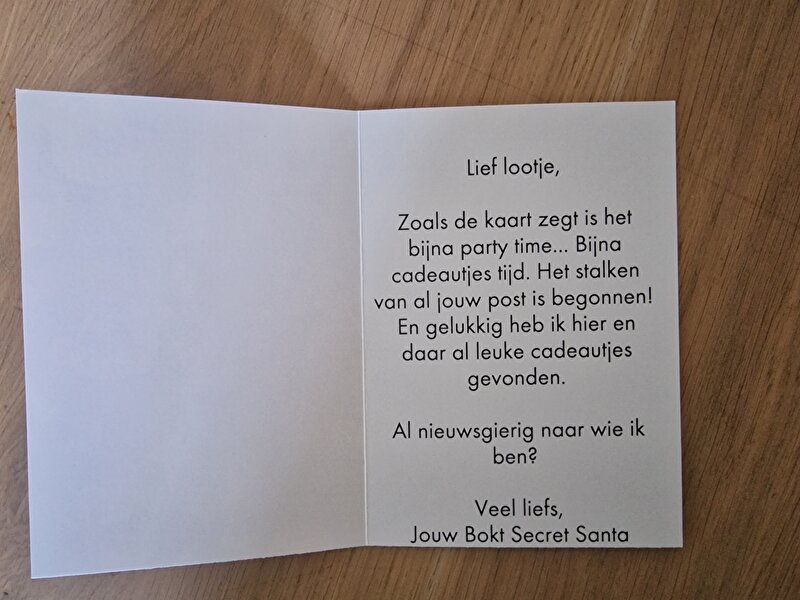 Lief lootje,
Zoals de kaart zegt is het
bijna party time... Bijna
cadeautjes tijd. Het stalken
van al jouw post is begonnen!
En gelukkig heb ik hier en
daar al leuke cadeautjes
gevonden.
Al nieuwsgierig naar wie ik
ben?
Veel liefs,
Jouw Bokt Secret Santa